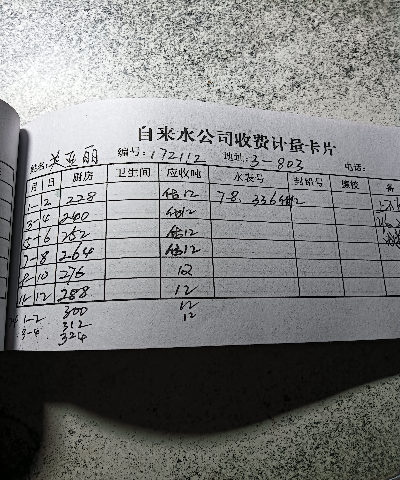 自来水公司收费计量卡片
姓名: 亚丽 编号: 172112 地址: 3-803 电话:
月 日 厨房 卫生间 应收吨 水表号 封铅号 编校 备
1-2 228 估12 7-8
3-4 240 估12
5-6 252 估12
7-8 264 估12
9-10 276 12
11-12 288 12
1-2 300 12
3-4 312 12
324